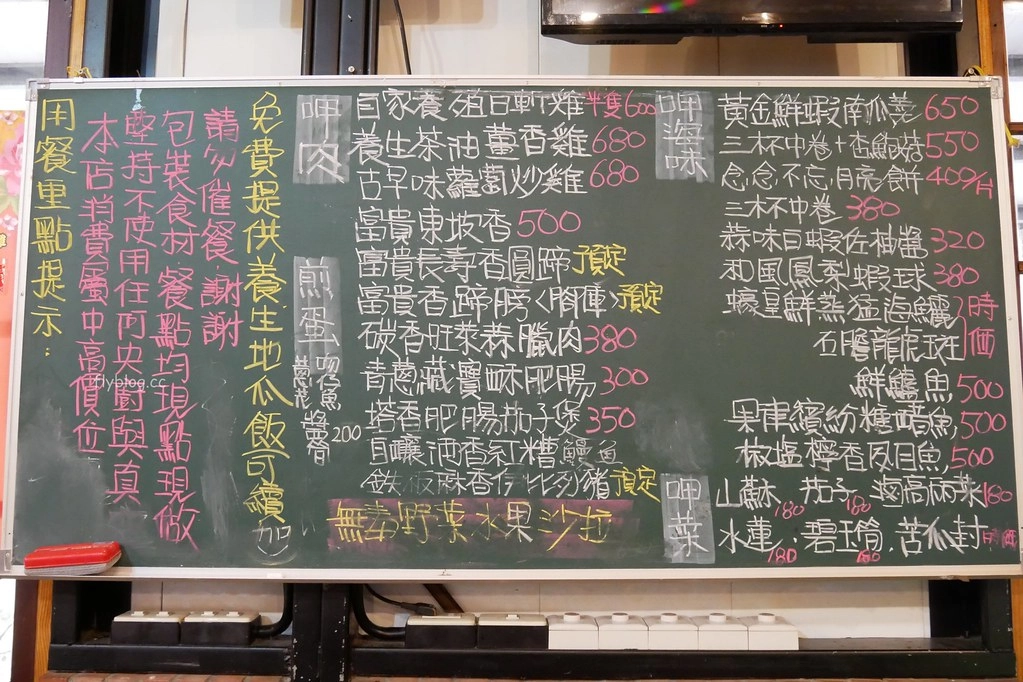 用餐重點提示：
本店消費屬中高價位
堅持不使用任何央廚與真
包裝食材 餐點均現點現做
請勿催餐. 謝謝
免費提供養生地瓜飯可續(加)
呷肉
自家養 斬雞 半隻600
養生茶油薑香雞 680
古早味蘿蔔炒雞 680
富貴東坡香 500
富貴長壽香圓蹄 預定
富貴香蹄膀〈胸庫〉預定
碳香旺萊蒜臘肉 380
青蔥藏寶酥肥腸 300
塔香肥腸茄子煲 350
自釀酒香紅糟鰻魚
鐵板麻香伊比利豬 預定
無毒野菜水果沙拉
煎蛋
吻仔魚
蔥花
醬香
200
呷海味
黃金鮮蝦南瓜羹 650
三杯中卷+杏鮑菇 550
念念不忘月亮餅 409/片
三杯中卷 380
蒜味白蝦佐柚醬 320
和風鳳梨蝦球 380
蠔皇鮮蒸猛海鱺
石膽龍虎斑
時価
鮮鱸魚 500
果律繽紛糖醋魚 500
椒塩檸香夙目魚 500
呷菜
山蘇 180 茄子 180 高麗菜 180
水蓮 180 碧玉筍 180 苦瓜封
iflyblog.cc